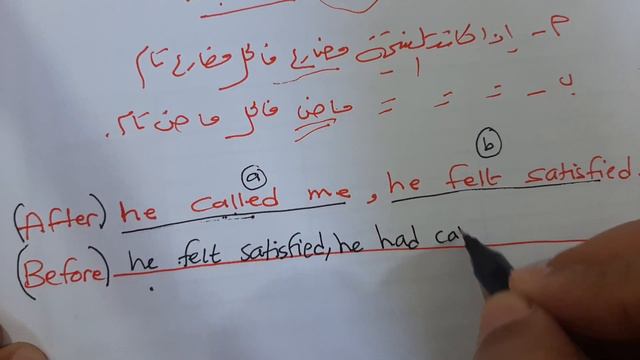 م - إذا كانت النتيجة مضارع فاكل مضارع تام
ب - = = = ماض فاكل ماض تام.
a b
(After) he called me, he felt satisfied.
(Before) he felt satisfied, he had ca